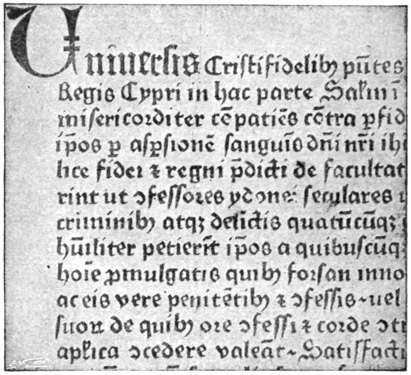 Uniuersis Cristifidelibꝫ pñtes
Regis Cypri in hac parte Salm̄ ī
misericorditer cōpatiēs cōtra ꝑfid
ip̄os ꝑ asꝑsionē sanguīs dñi nr̄i ihū
lice fidei ⁊ regni p̄dicti de facultat
rint ut ꝯfessores ydonei seculares
criminibꝫ atqꝫ delictis quātūcūqꝫ
hūiliter petierīt ip̄os a quibuscūqꝫ
hoīe ꝓmulgatis quibꝫ forsan inno
ac eis vere penitētibꝫ ⁊ ꝯfessis‧uel
suoꝝ de quibꝫ ore ꝯfessi ⁊ corde ꝯtr
ap̄lica ꝯcedere valeāt‧Satisfacti